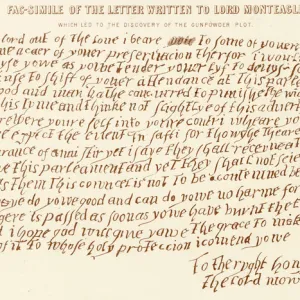 FAC-SIMILE OF THE LETTER WRITTEN TO LORD MONTEAGL
WHICH LED TO THE DISCOVERY OF THE GUNPOWDER PLOT.
lord out of the love i beare to some of youere
e a caer of youer preservacion therfor i woul
yse yowe as yowe tender youer lyf to devys som
cuse to shift of youer attendance at this parle
god and man hathe concurred to punishe the wi
his tyme and thinke not slightlye of this adver
retyere youre self into youre contri wheare yow
e expect the event in safti for thowghe theare
arance of anni stir yet i saye they shall receyve a te
we this parleament and yet they shall not seie
ts them This councel is not to be contemned be
ye do yowe good and can do yowe no harme for
gere is passed as soon as yowe have burnt the
i hope god will give yowe the grace to mak
of it to whose holy proteccion i comend yowe
To the right hon
the lord mow